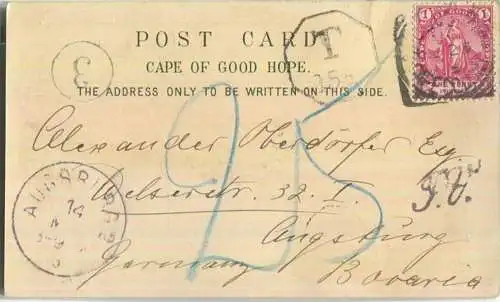 POST CARD
CAPE OF GOOD HOPE.
THE ADDRESS ONLY TO BE WRITTEN ON THIS SIDE.
3
T
25
1
OF GOOD HOPE
ONE PENNY
Alexander Oberdörfer Esq
Welserstr. 32. I.
Augsburg
Germany
Bavaria
AUGSBURG
14